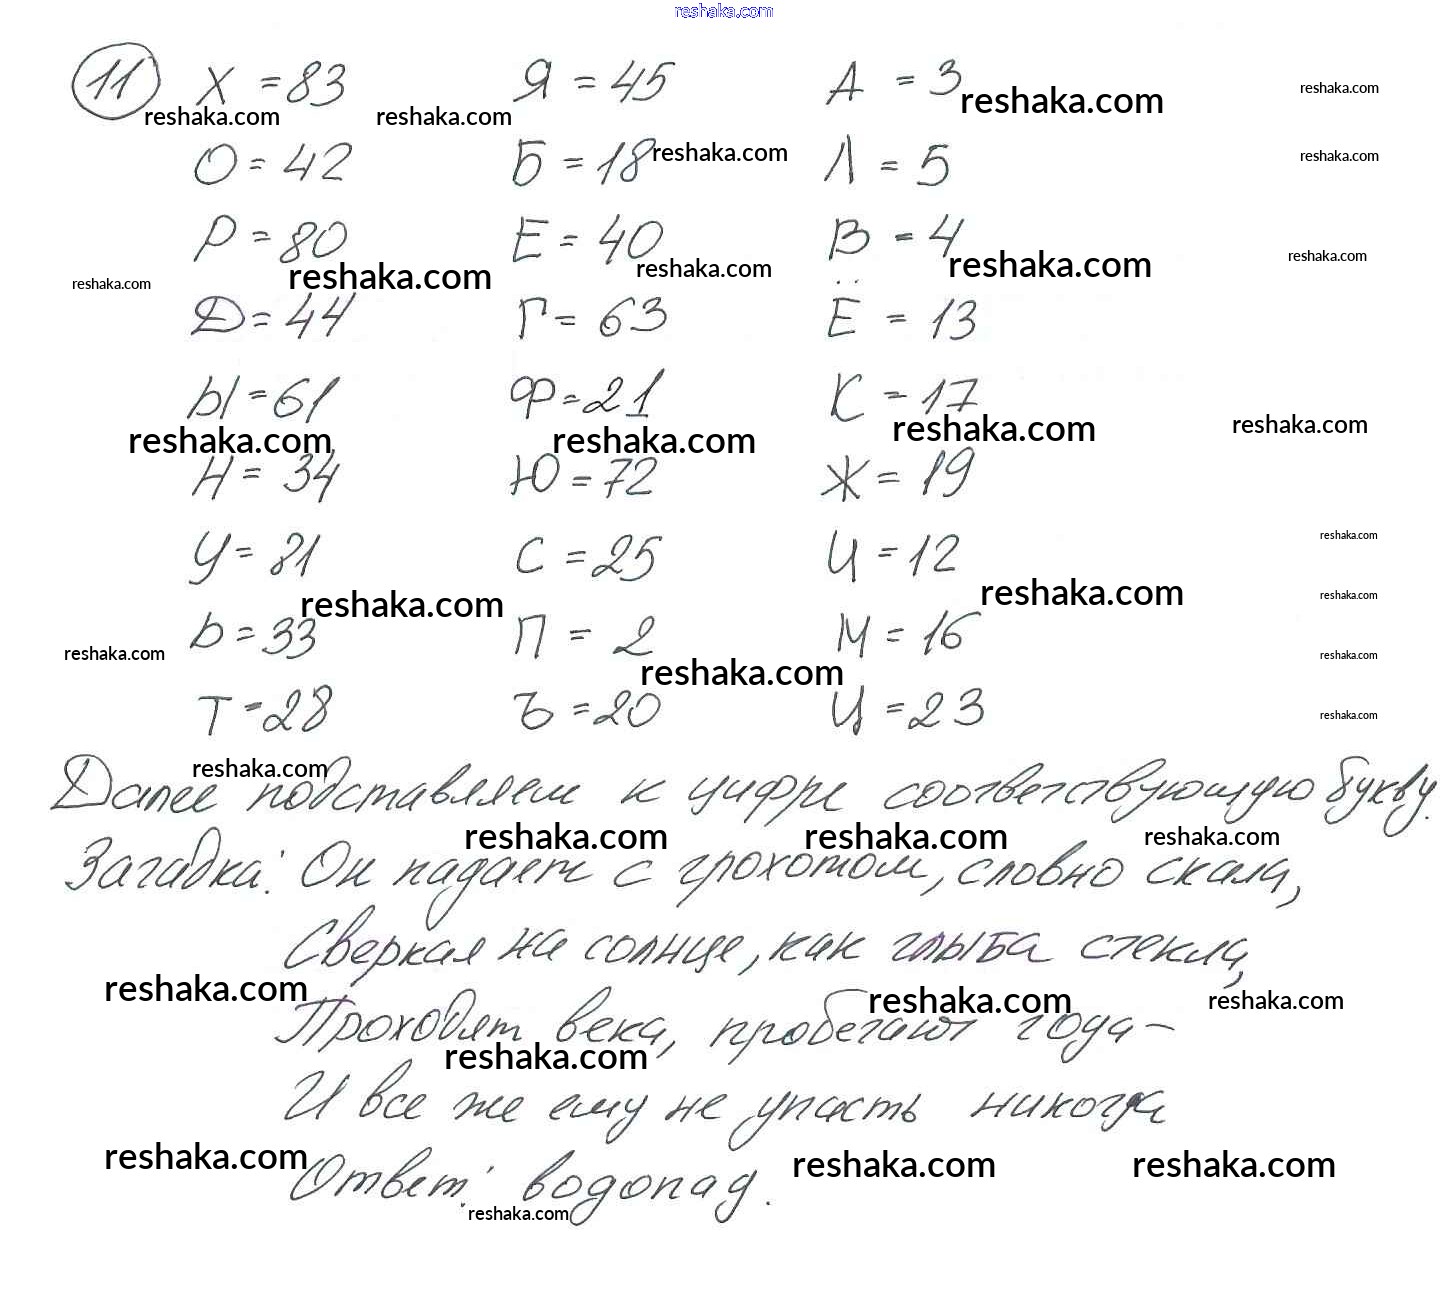 reshaka.com
11 Х = 83 Я = 45 А = 3
reshaka.com reshaka.com reshaka.com reshaka.com
О = 42 Б = 18 Л = 5
reshaka.com reshaka.com
Р = 80 Е = 40 В = 4
reshaka.com reshaka.com reshaka.com reshaka.com reshaka.com
Д = 44 Г = 63 Ё = 13
Ы = 61 Ф = 21 К = 17
reshaka.com reshaka.com reshaka.com reshaka.com
Н = 34 Ю = 72 Ж = 19
У = 81 С = 25 И = 12
reshaka.com reshaka.com reshaka.com reshaka.com
Ь = 33 П = 2 М = 16
reshaka.com reshaka.com reshaka.com
Т = 28 Ъ = 20 Ц = 23
reshaka.com
reshaka.com
Далее подставляем к цифре соответствующую букву.
reshaka.com reshaka.com reshaka.com
Загадка: Он падает с грохотом, словно скала,
Сверкая на солнце, как глыба стекла,
reshaka.com reshaka.com reshaka.com
Проходят века, пробегают года –
reshaka.com
И все же ему не упасть никогда
reshaka.com reshaka.com reshaka.com
Ответ: водопад.
reshaka.com